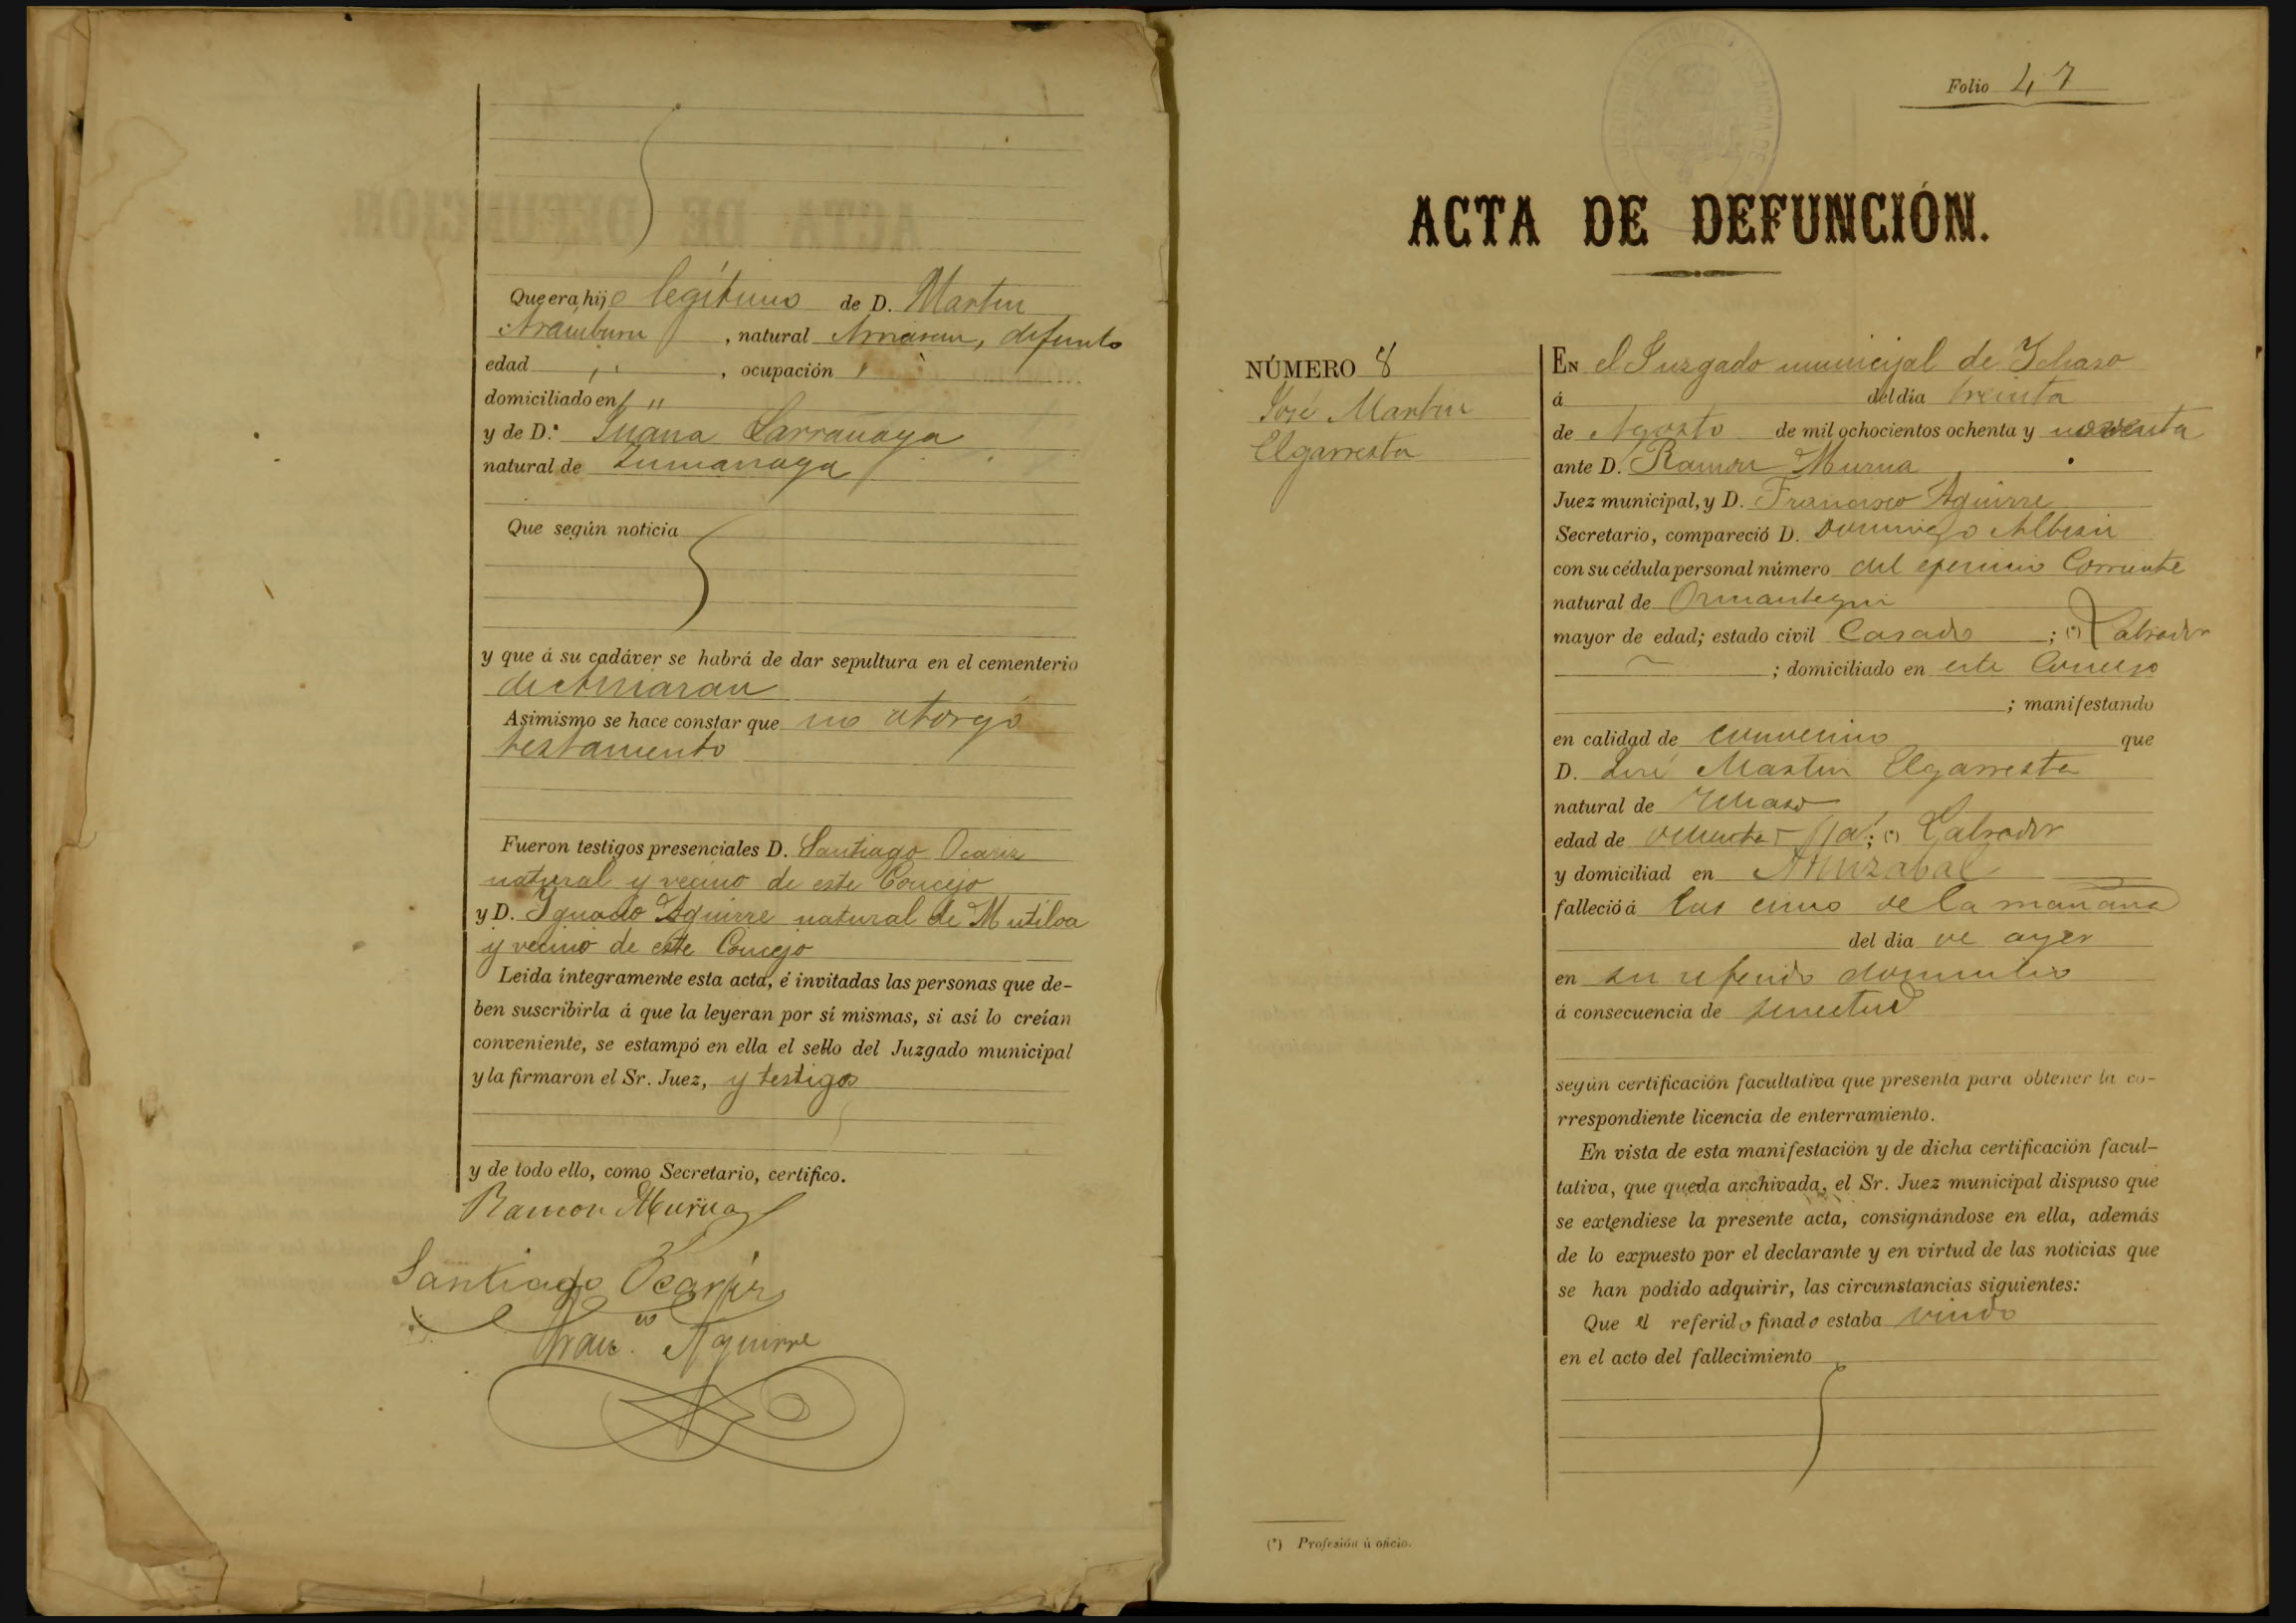 Que era hijo legítimo de D. Martin
Aramburu, natural Arriaran, defunto
edad " , ocupación "
domiciliado en "
y de D.ª Juana Larrañaga
natural de Zumarraga
Que según noticia
y que á su cadáver se habrá de dar sepultura en el cementerio
de Arriaran
Asimismo se hace constar que no otorgó
testamento
Fueron testigos presenciales D. Santiago Ocariz
natural y vecino de este Concejo
y D. Ygnacio Aguirre natural de Mutiloa
y vecino de este Concejo
Leida íntegramente esta acta, é invitadas las personas que de-
ben suscribirla á que la leyeran por sí mismas, si así lo creían
conveniente, se estampó en ella el sello del Juzgado municipal
y la firmaron el Sr. Juez, y testigos
y de todo ello, como Secretario, certifico.
Ramon Murua
Santiago Ocariz
Fran.co Aguirre
Folio 47
ACTA DE DEFUNCIÓN.
NÚMERO 8
José Martin
Elgarresta
EN el Juzgado municipal de Ichaso
á del dia treinta
de Agosto de mil ochocientos ochenta y noventa
ante D. Ramon Murua
Juez municipal, y D. Francisco Aguirre
Secretario, compareció D. Domingo Albisu
con su cédula personal número del ejercicio Corriente
natural de Ormaiztegui
mayor de edad; estado civil Casado ; (*) Labrador
; domiciliado en este Concejo
; manifestando
en calidad de convecino que
D. José Martin Elgarresta
natural de Ichaso
edad de ochenta ; (*) Labrador
y domiciliad en
falleció á las cinco de la mañana
del dia de ayer
en su referido domicilio
á consecuencia de senectud
según certificación facultativa que presenta para obtener la co-
rrespondiente licencia de enterramiento.
En vista de esta manifestación y de dicha certificación facul-
tativa, que queda archivada, el Sr. Juez municipal dispuso que
se extendiese la presente acta, consignándose en ella, además
de lo expuesto por el declarante y en virtud de las noticias que
se han podido adquirir, las circunstancias siguientes:
Que el referido finado estaba viudo
en el acto del fallecimiento
(*) Profesión ú oficio.